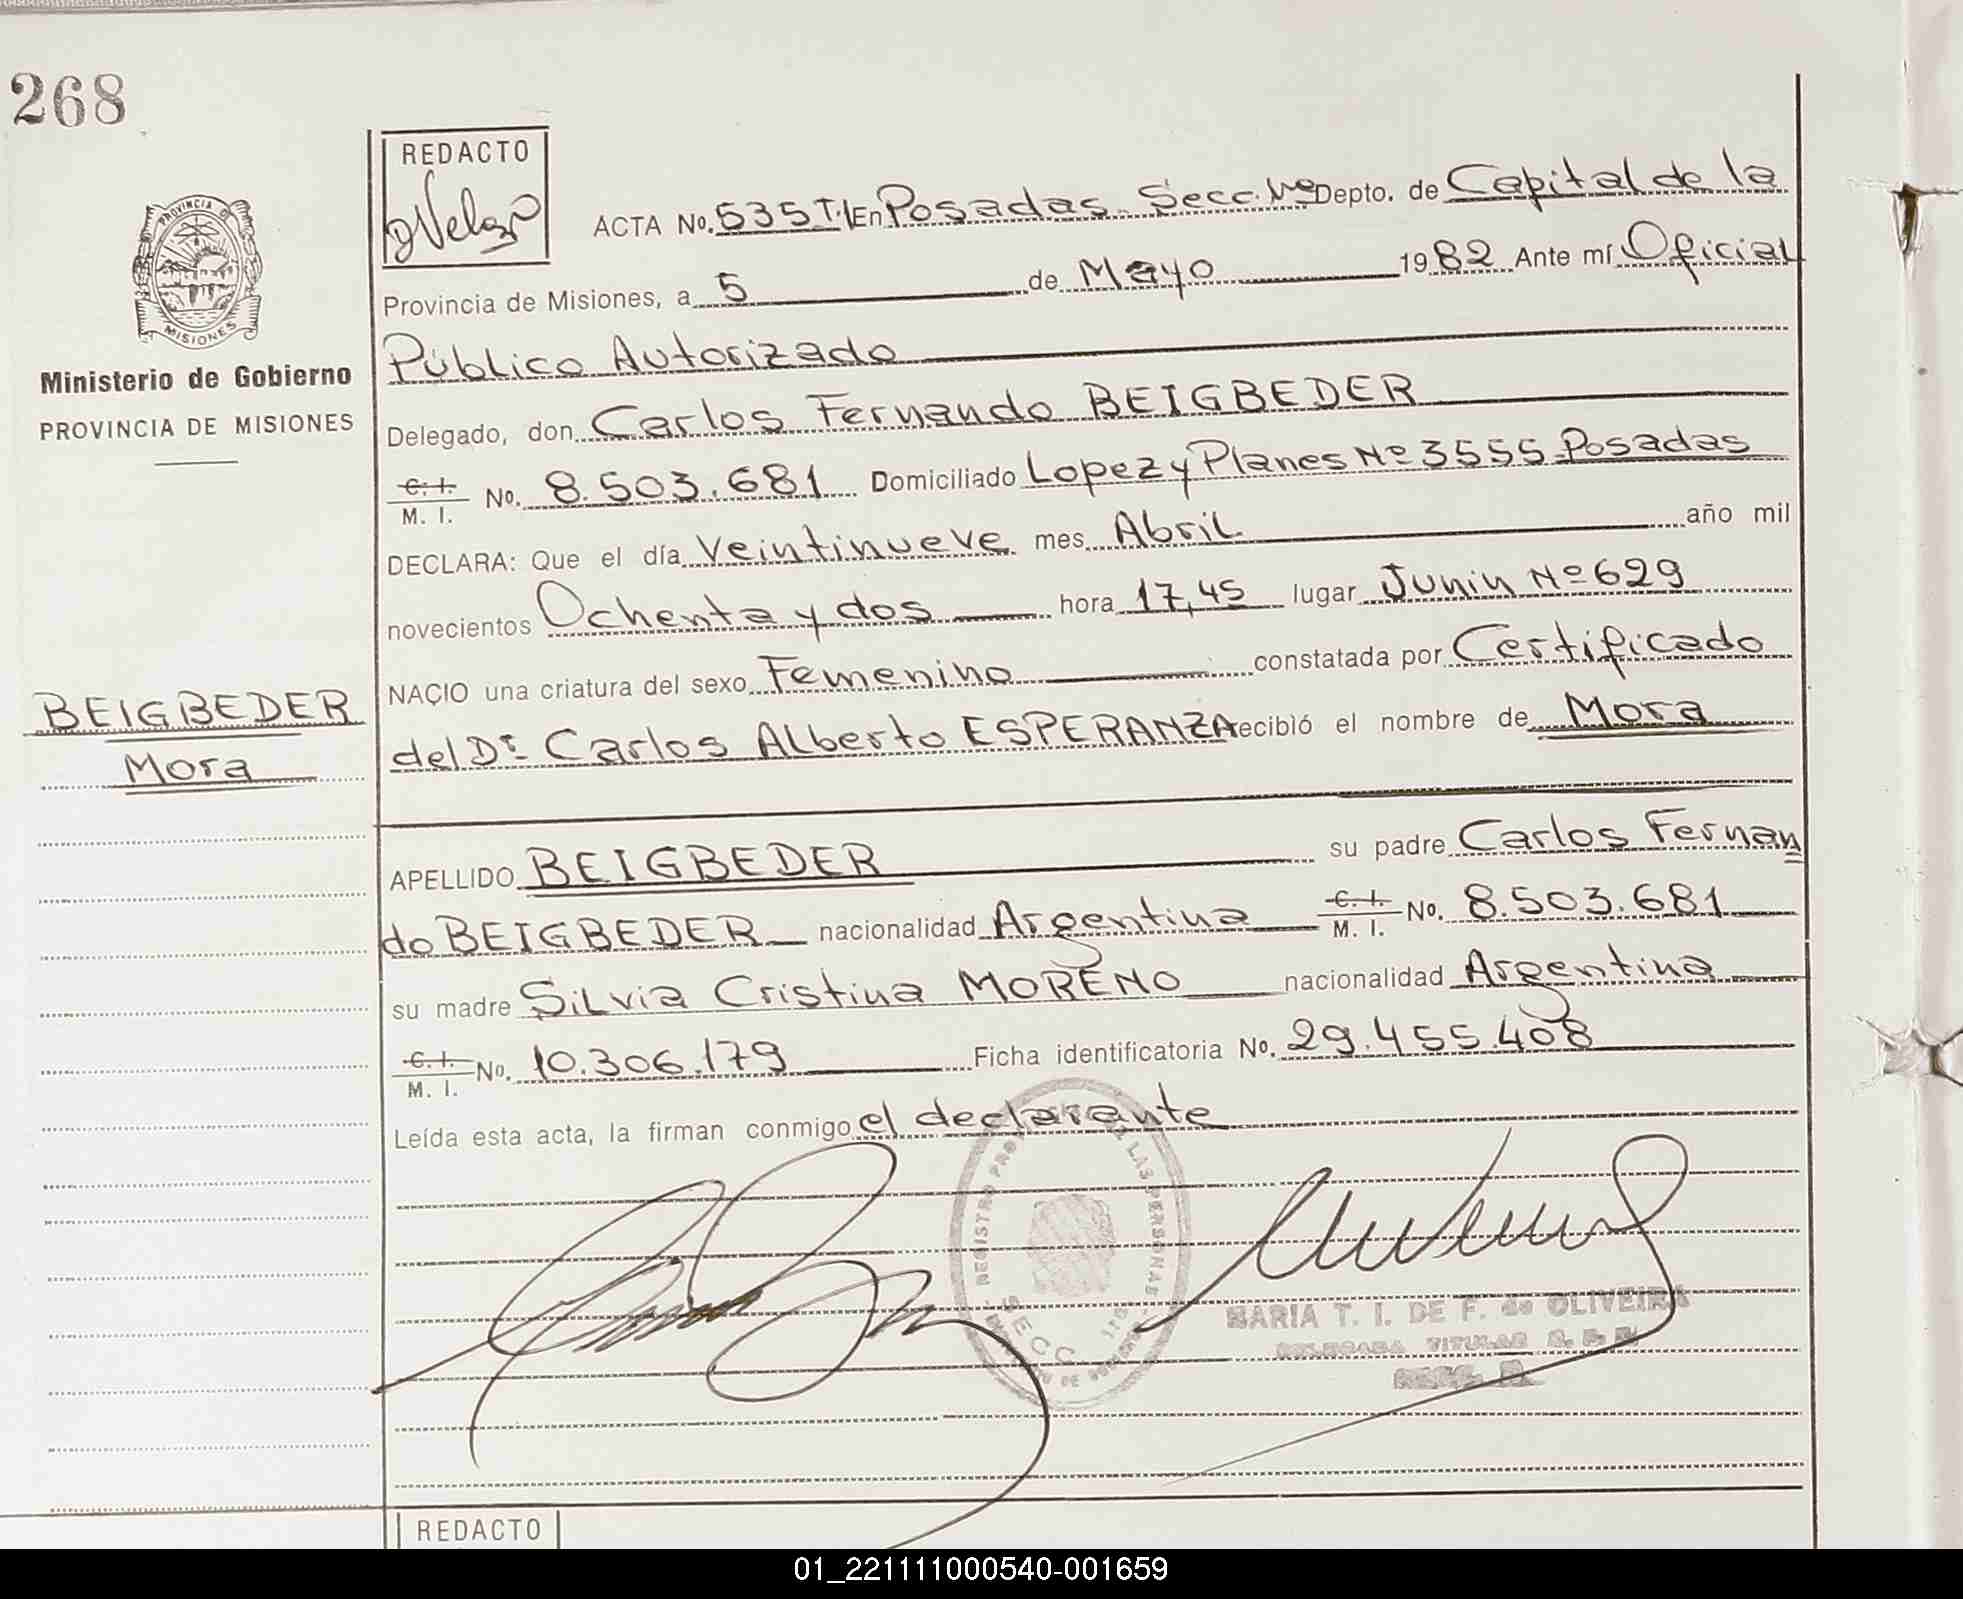 268
REDACTO
PROVINCIA DE
MISIONES
Ministerio de Gobierno
PROVINCIA DE MISIONES
ACTA No. 535 T.I En Posadas. Secc. Nº Depto. de Capital de la
Provincia de Misiones, a 5 de Mayo 1982 Ante mí Oficial
Público Autorizado
Delegado, don Carlos Fernando BEIGBEDER
C. I.
M. I. No. 8.503.681 Domiciliado Lopez y Planes Nº 3555 Posadas
DECLARA: Que el día veintinueve mes Abril año mil
novecientos Ochenta y dos hora 17,45 lugar Junin Nº 629
NACIO una criatura del sexo Femenino constatada por Certificado
del Dr. Carlos Alberto ESPERANZA recibió el nombre de Mora
BEIGBEDER
Mora
APELLIDO BEIGBEDER su padre Carlos Fernan
do BEIGBEDER nacionalidad Argentina C. I. M. I. No. 8.503.681
su madre Silvia Cristina MORENO nacionalidad Argentina
C. I.
M. I. No. 10.306.179 Ficha identificatoria No. 29.455.408
Leída esta acta, la firman conmigo el declarante
REGISTRO PRO LAS PERSONAS
SECC
MARIA T. I. DE F. de OLIVEIRA
DELEGADA TITULAR
REDACTO
01_221111000540-001659